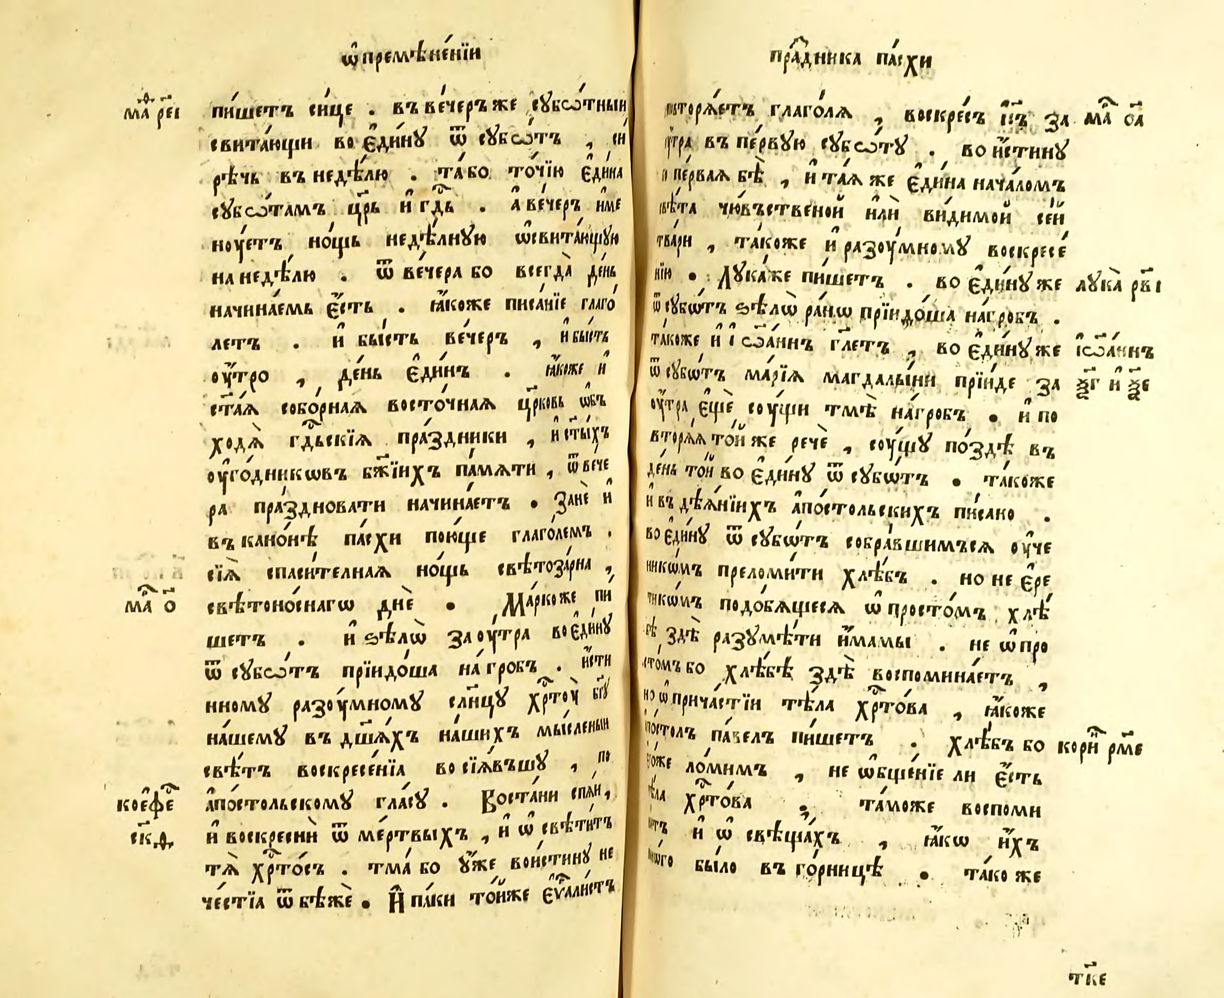 ѡ҆ премѣне́нїи
пра́здника па́схи
маѳ рє҃і
пи́шетъ си́це . въ ве́черъ же сꙋбѡ́тныи
свита́ющи во є҆ди́нꙋ ѿ сꙋбѡ́тъ , си
рѣ́чь въ недѣ́лю . та́ бо то́чїю є҆ди́на
сꙋбѡ́тамъ цр҃ь и҆ гдⷭ҇ь . а҆ ве́черъ и҆ме
нꙋ́етъ но́щь недѣ́лнꙋю ѡ҆свита́ющꙋю
на недѣ́лю . ѿ ве́чера бо всегда̀ де́нь
начина́емь є҆́сть . ꙗ҆́коже писа́нїе глаго́
летъ . и҆ бы́сть ве́черъ , и҆ бы́сть
ᲂу҆́тро , де́нь є҆ди́нъ . ꙗ҆́коже и҆
ст҃а́ѧ собо́рнаѧ восто́чнаѧ цр҃ковь ѡ҆бъ
ходѧ̀ гдⷭ҇ьскїѧ пра́здники , и҆ ст҃ы́хъ
ᲂу҆го́дникѡвъ бж҃їихъ па́мѧти , ѿ вече
ра пра́здновати начина́етъ . занѐ и҆
въ кано́нѣ па́схи пою́ще глаго́лемъ .
сїѧ̀ спаси́телнаѧ но́щь свѣтоза́рна ,
свѣтоно́снагѡ днѐ . Ма́рко же пи
ма о҃
шетъ . и҆ ѕѣлѡ̀ за ᲂу́тра во є҆ди́нꙋ
ѿ сꙋбѡ́тъ прїидо́ша на́ гробъ . и҆́сти
нномꙋ разꙋ́мномꙋ сл҃нцꙋ хрⷭ҇тꙋ̀ бг҃ꙋ
на́шемꙋ въ дш҃а́хъ на́шихъ мы́сленыи
свѣ́тъ воскресе́нїа во сїѧ́въшꙋ , по
кѡ є҆фе
а҆по́стольскомꙋ гла́сꙋ . Воста́ни спѧ́и ,
ск҃д
и҆ воскреснѝ ѿ ме́ртвыхъ , и҆ ѡ҆ свѣти́тъ
тѧ̀ хрⷭ҇то́съ . тма́ бо ᲂу҆́же вои́стинꙋ не
че́стїа ѿбѣжѐ . И҆ па́ки то́йже є҆ѵⷢ҇али́стъ
повторѧ́етъ глаго́лѧ , воскре́съ і҆с҃ъ за
ма о҃а
ᲂу́тра въ пе́рвꙋю сꙋбѡ́тꙋ . во и҆́стинꙋ
и҆ пе́рваѧ бѣ̀ , и҆ та́ѧ же є҆ди́на нача́ломъ
свѣ́та чю́въственой и҆лѝ ви́димой се́й
тва́ри , та́коже и҆ разꙋ́мномꙋ воскресе́
нїю . Лꙋка́ же пи́шетъ . во є҆ди́нꙋ же
лꙋка̀ рв҃і
ѿ сꙋбѡ́тъ ѕѣлѡ̀ ра́нѡ прїидо́ша на́ гробъ .
та́коже и҆ і҆ѡа́ннъ гл҃етъ , во є҆ди́нꙋ же
і҆ѡа́ннъ
ѿ сꙋбѡ́тъ марі́ѧ магдалы́ни прїи́де за
ѯ҃г и҆ ѯ҃е
ᲂу́тра є҆щѐ сꙋ́щи тмѣ̀ на́ гробъ . и҆ по
вторѧ́ѧ то́й же речѐ , сꙋ́щꙋ по́здѣ въ
де́нь то́й во є҆ди́нꙋ ѿ сꙋбѡ́тъ . та́коже
и҆ въ дѣѧ́нїихъ а҆по́стольскихъ пи́сано .
во є҆ди́нꙋ ѿ сꙋбѡ́тъ собра́вшимъсѧ ᲂу҆че
никѡ́мъ преломи́ти хлѣ́бъ . но не є҆ре
тикѡ́мъ подо́бѧщесѧ ѡ҆ просто́мъ хлѣ́
бѣ здѣ̀ разꙋмѣ́ти и҆́мамы . не ѡ҆ про
сто́мъ бо хлѣ́бѣ здѣ̀ воспомина́етъ ,
но ѡ҆ прича́стїи тѣ́ла хрⷭ҇то́ва , ꙗ҆́коже
а҆по́столъ па́велъ пи́шетъ . хлѣ́бъ бо
кори́н рм҃е
є҆го́же ло́мимъ , не ѻ҆бще́нїе ли є҆́сть
тѣ́ла хрⷭ҇то́ва , та́може воспоми
на́етъ и҆ ѡ҆ свѣща́хъ , ꙗ҆́кѡ и҆́хъ
мно́го бы́ло въ го́рницѣ . та́ко же
тк҃е